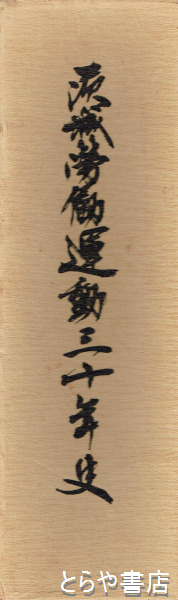 茨城労働運動三十年史
とらや書店